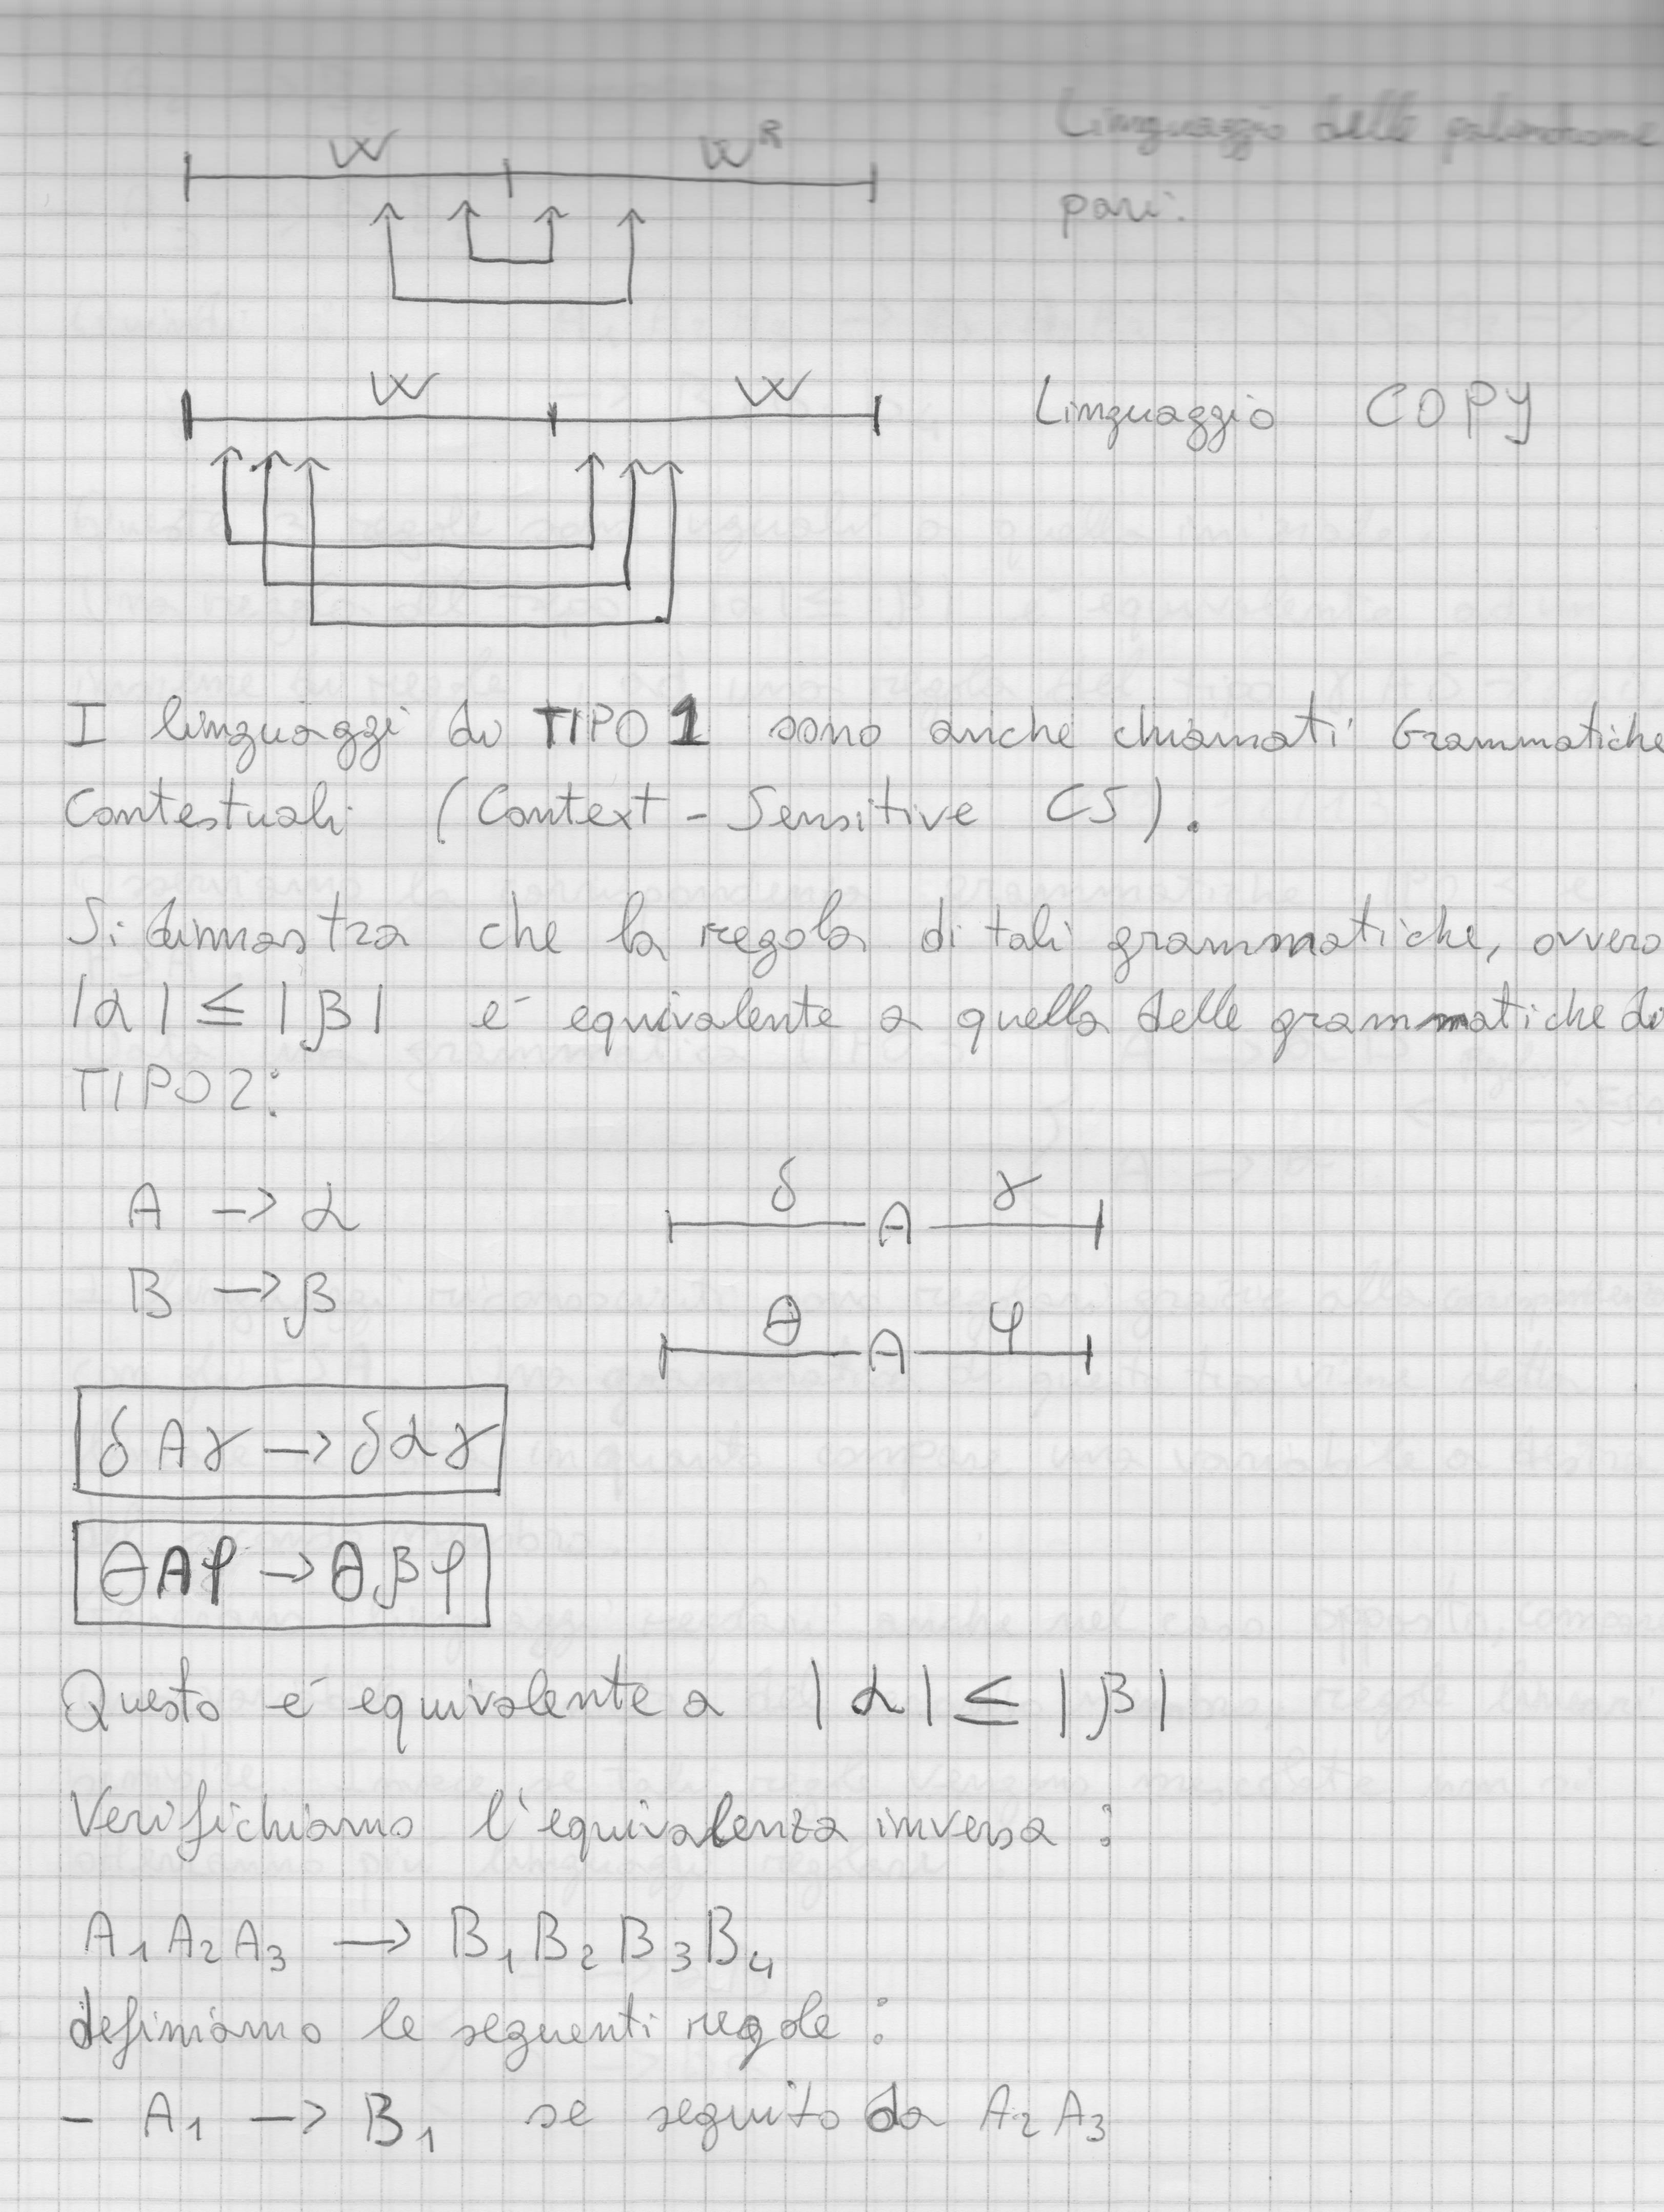 W Wᴿ Linguaggio delle palindrome
pari.
W W Linguaggio COPY
I linguaggi di TIPO 1 sono anche chiamati Grammatiche
Contestuali (Context - Sensitive CS).
Si dimostra che la regola di tali grammatiche, ovvero
|α| ≤ |β| é equivalente a quella delle grammatiche di
TIPO 2:
A -> α δ A γ
B -> β θ A φ
δAγ -> δαγ
θAφ -> θβφ
Questo é equivalente a |α| ≤ |β|
Verifichiamo l'equivalenza inversa:
A₁A₂A₃ -> B₁B₂B₃B₄
definiamo le seguenti regole:
- A₁ -> B₁ se seguito da A₂A₃